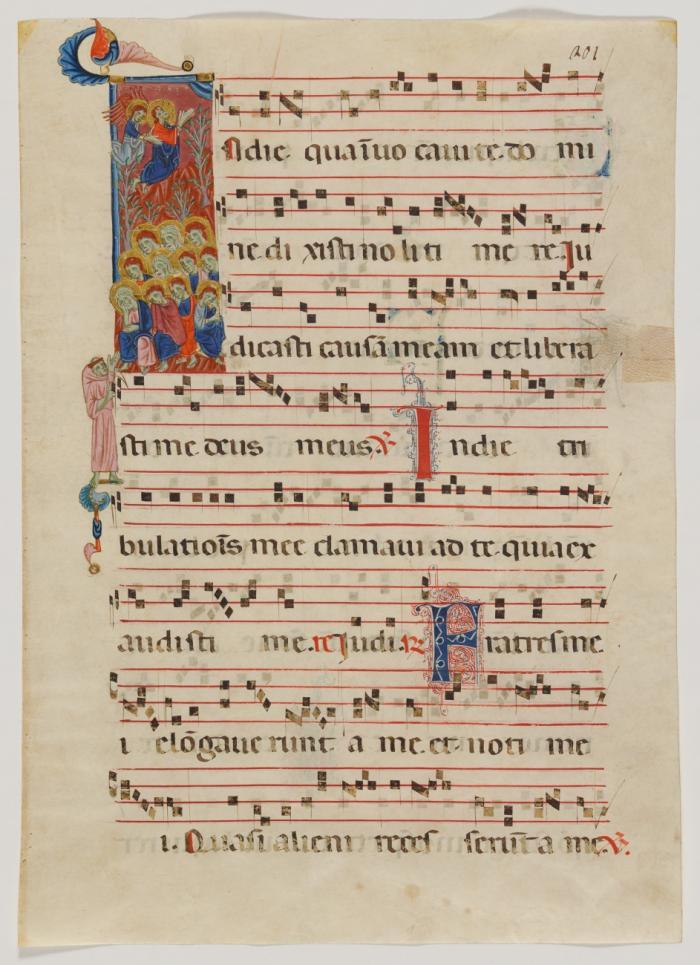 201
Indie quaīuo caui te do mi
ne di xisti noli ti me re Ju
dicasti causā meam et libera
sti me deus meus. ℣ Indie tri
bulatiois mee clamaui ad te quia ex
audisti me. re Judi. ℟ Fratres me
i elōgaue runt a me et noti me
i. Quasi alieni reces serūt a me. ℣.